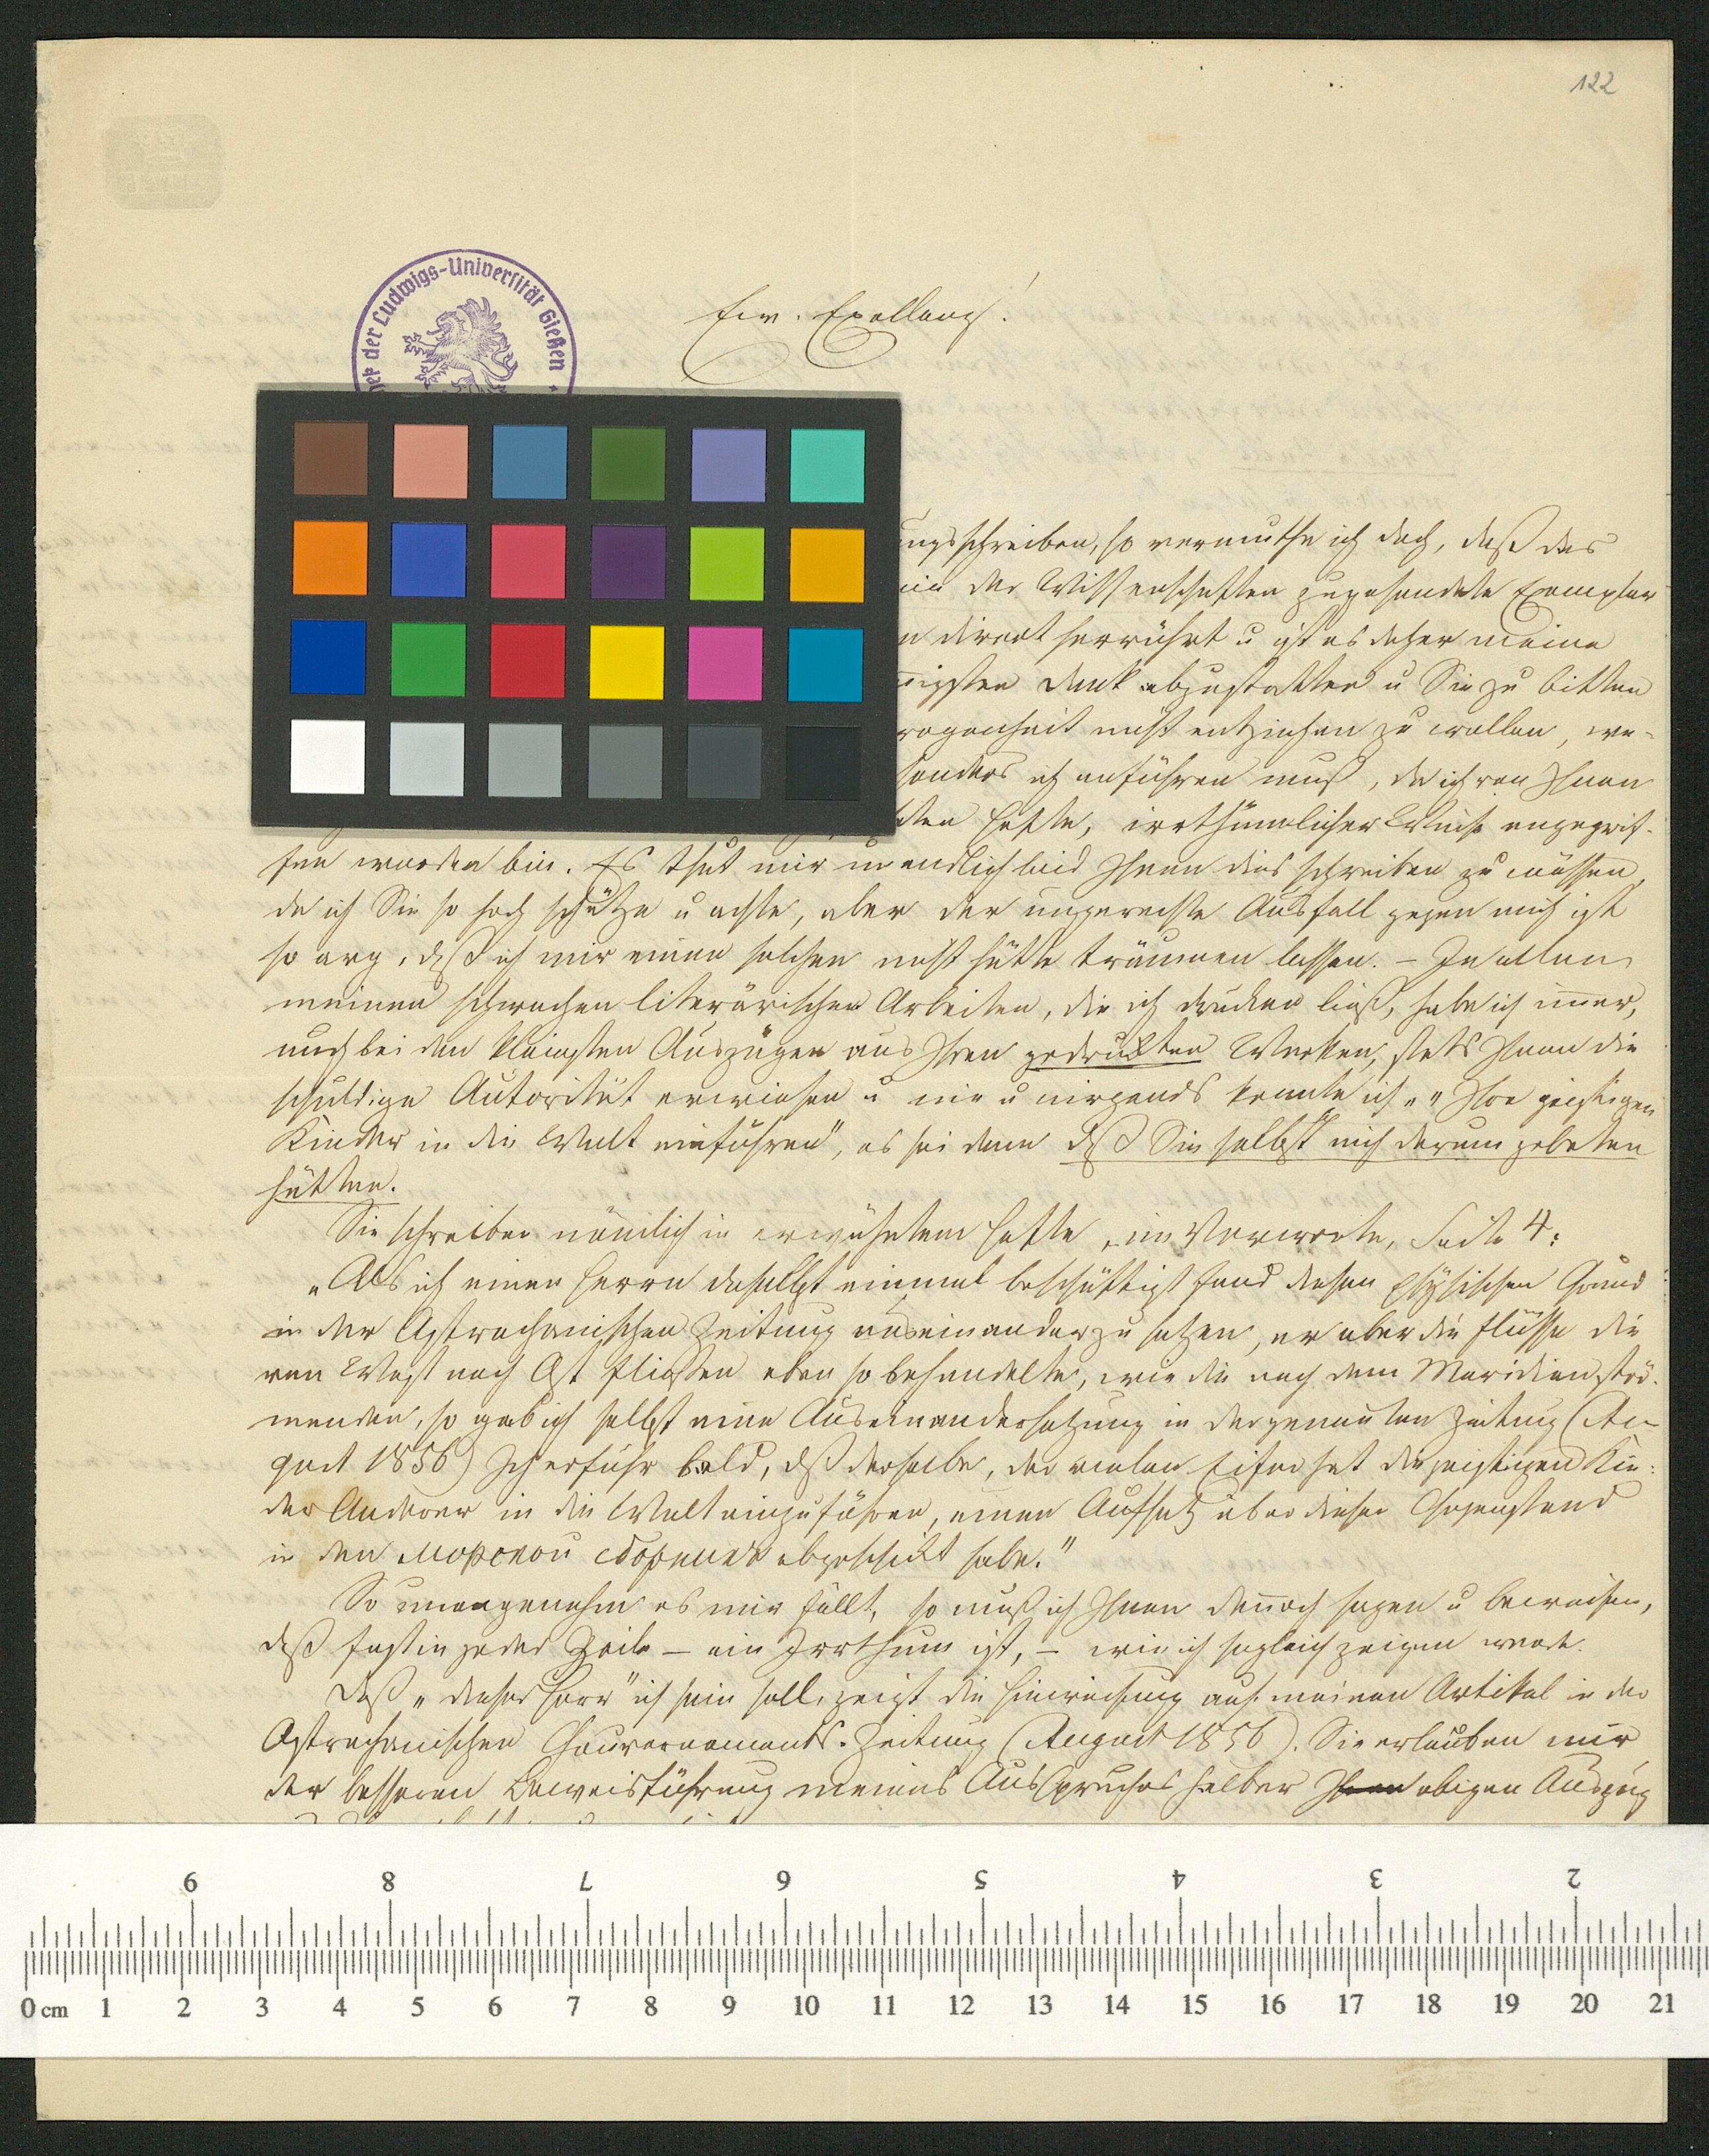 122
der Ludwigs-Universität Gießen
Ew. Exellenz!
ungsschreiben, so vermuthe ich doch, daß das
mie der Wissenschaften zugesendete Exemplar
n direct herrührt u ist es daher meine
nigsten Dank abzustatten u Sie zu bitten
wogenheit nicht entziehen zu wollen, we-
sonders ich anführen muß, da ich von Ihnen
ten Hefte, irrthümlicher Weise angegrif-
fen worden bin. Es thut mir unendlich leid Ihnen dies schreiben zu müssen,
da ich Sie so hoch schätze u achte, aber der ungerechte Ausfall gegen mich ist
so arg, daß ich mir einen solchen nicht hätte träumen lassen. – In allen
meinen schwachen literärischen Arbeiten, die ich drucken ließ, habe ich immer,
auch bei den kleinsten Auszügen aus Ihren gedruckten Werken, stets Ihnen die
schuldige Autorität erwiesen u nie u nirgends konnte ich „" Ihre geistigen
Kinder in die Welt einführen", es sei denn daß Sie selbst mich darum gebeten
hätten.
Sie schreiben nämlich in erwähntem Hefte, im Vorworte, Seite 4:
„Als ich einen Herrn daselbst einmal beschäftigt fand diesen physischen Grund
in der Astrachanischen Zeitung auseinander zu setzen, er aber die Flüsse die
von West nach Ost fließen eben so behandelte, wie die nach dem Meridian strö-
menden, so gab ich selbst eine Auseinandersetzung in der genannten Zeitung (Au-
gust 1856) Ich erfuhr bald, daß derselbe, der vielen Eifer hat die geistigen Kin-
der Anderer in die Welt einzuführen, einen Aufsatz über diesen Gegenstand
in den Морской сборникъ abgeschickt habe."
So unangenehm es mir fällt, so muß ich Ihnen dennoch sagen u beweisen,
daß fast in jeder Zeile – ein Irrthum ist, – wie ich sogleich zeigen werde.
Daß „dieser Herr" ich sein soll, zeigt die Hinweisung auf meinen Artikel in der
Astrachanischen Gouvernements-Zeitung (August 1856). Sie erlauben mir
der besseren Beweisführung meines Ausspruches halber Ihren obigen Auszug
9 8 7 6 5 4 3 2
0 cm 1 2 3 4 5 6 7 8 9 10 11 12 13 14 15 16 17 18 19 20 21